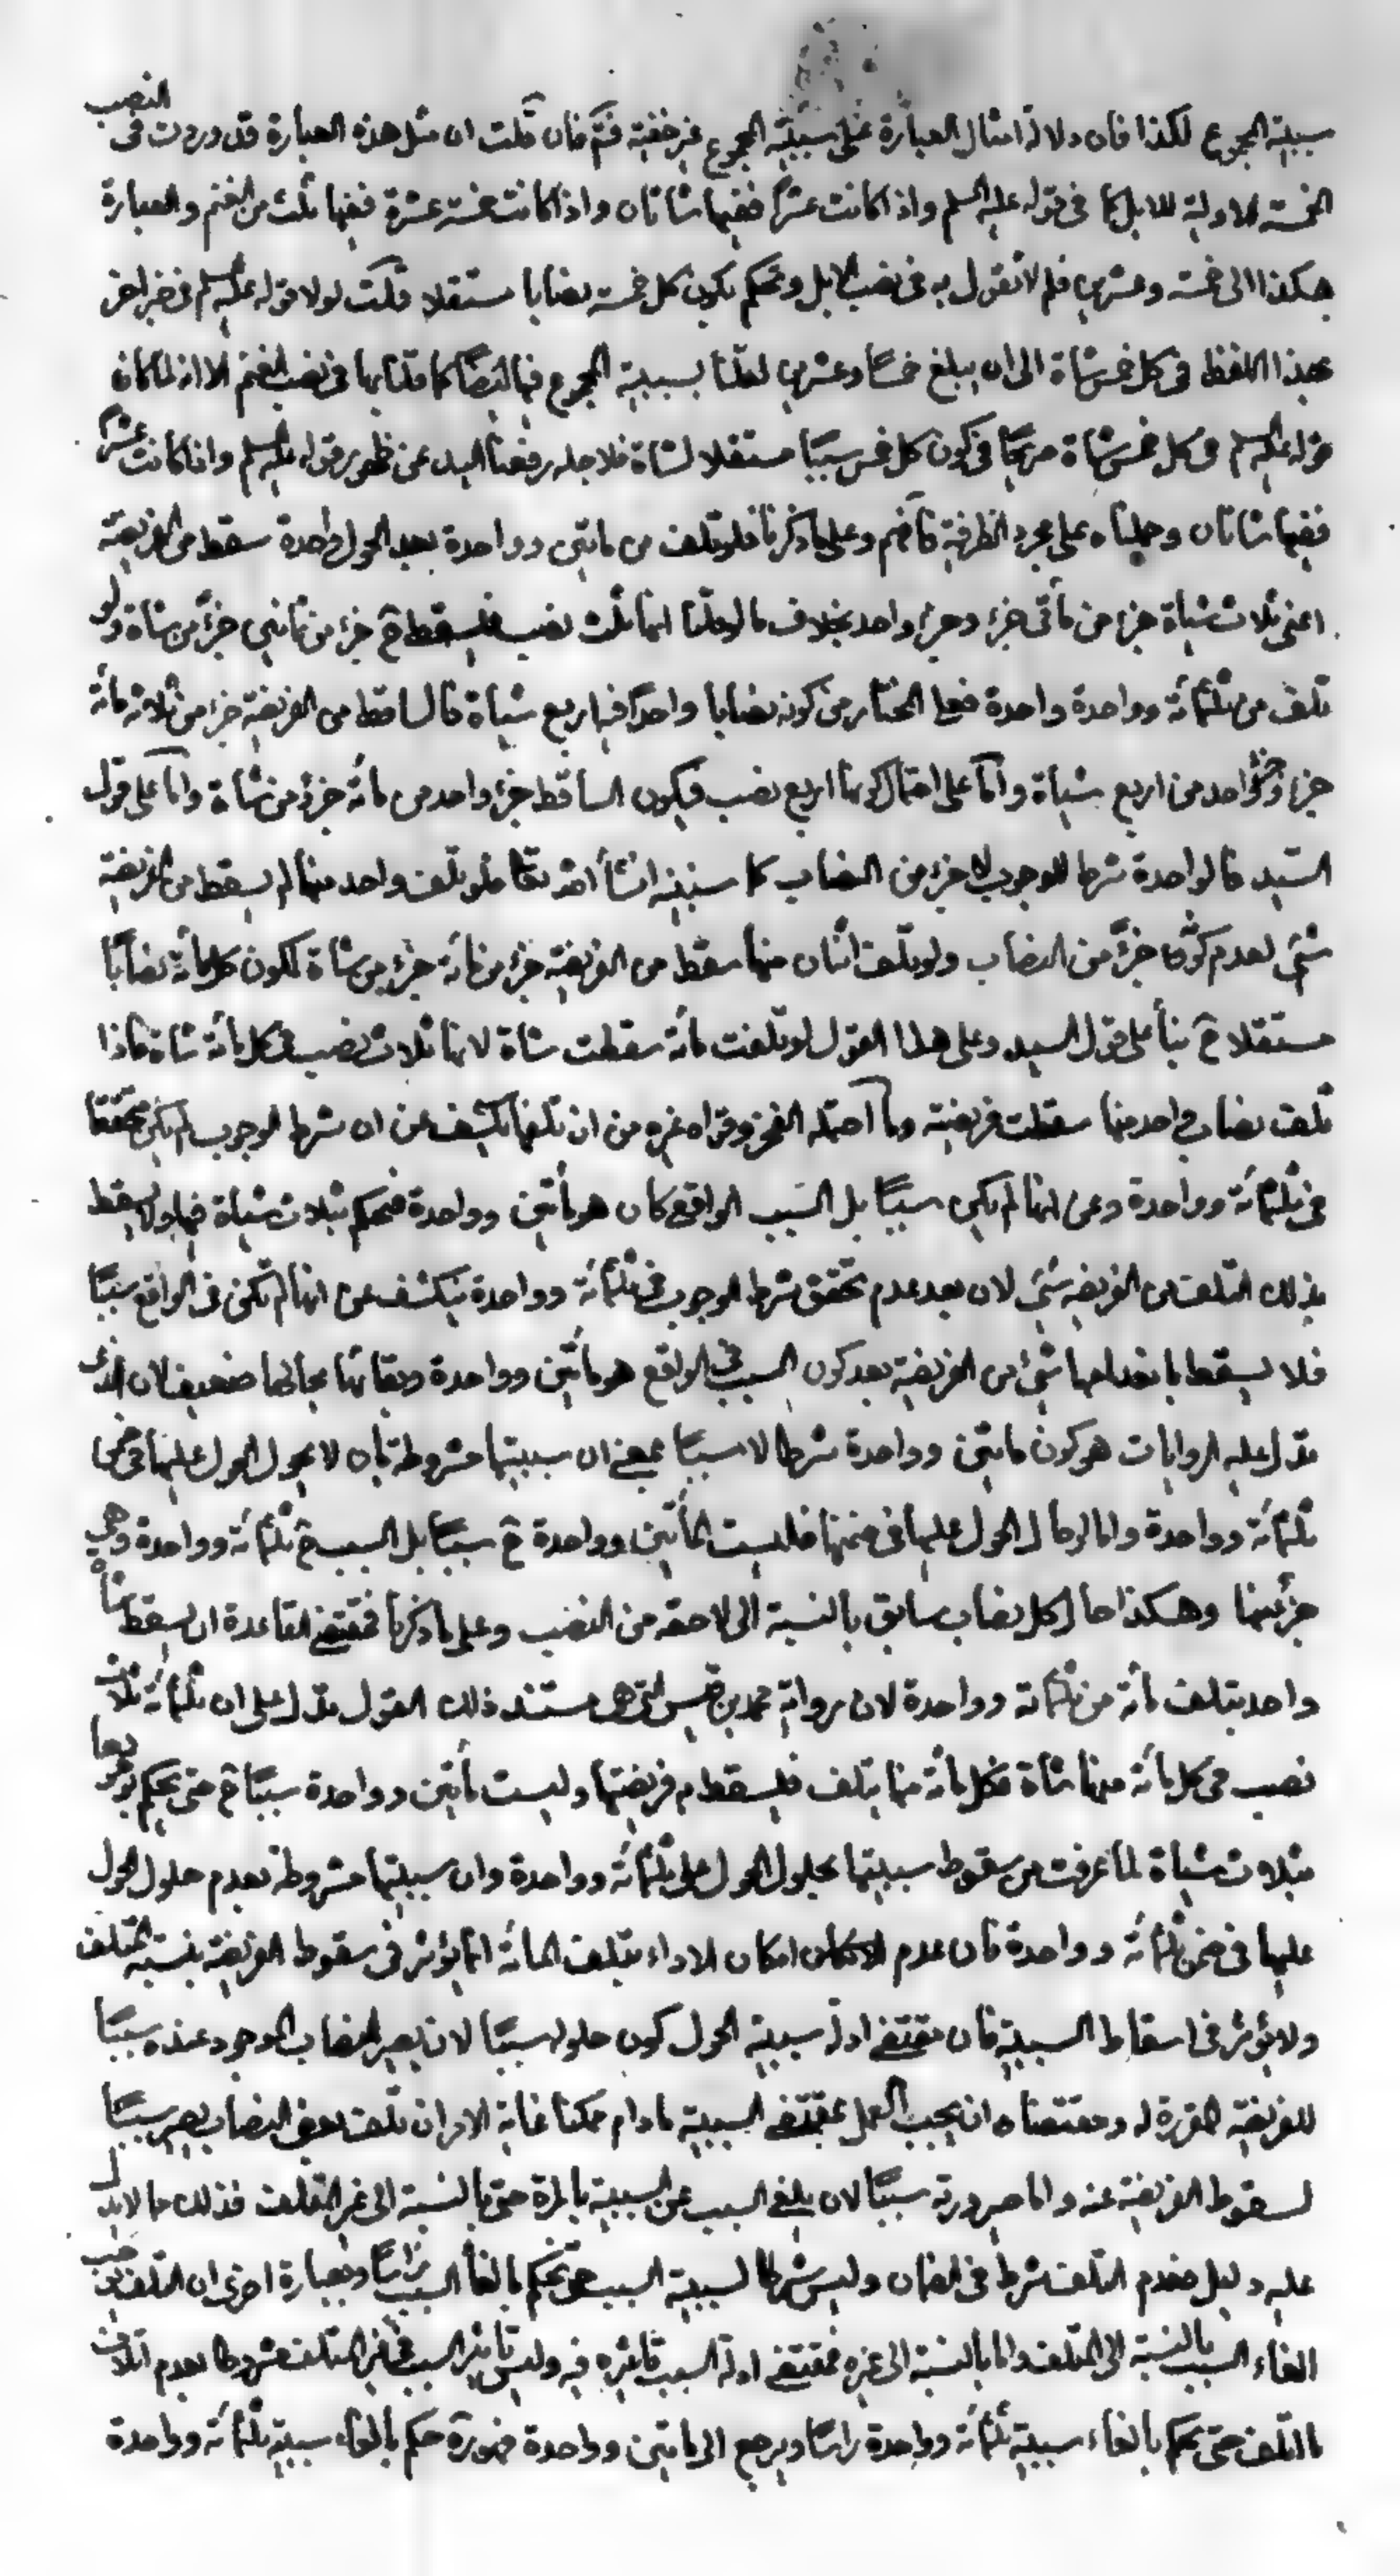 سببية المجموع لكذا فان دلالة امثال العبارة على سببية المجموع غير خفية فتم فان قلت ان مثل هذه العبارة قد وردت فى النصب
الخمسة الاولية للابل كما فى قوله عليه السلم واذا كانت عشرا ففيها شاتان واذا كانت خمسة عشرة ففيها ثلث من الغنم والعبارة
هكذا الى خمسة وعشرين فلم لا تقول به فى نصب الابل وتحكم بكون كل خمسة نصابا مستقلا قلت لولا قوله عليه السلم فى خبر اخر
بهذا اللفظ فى كل خمس شاة الى ان يبلغ خمسا وعشرين لقلنا بسببية المجموع فيها ايضا كما قلنا بها فى نصب الغنم الا انه لما كان
قوله عليه السلم فى كل خمس شاة صريحا فى كون كل خمس سببا مستقلا لشاة فلاجله رفعنا اليد عن ظهور قوله عليه السلم واذا كانت عشرا
ففيها شاتان وحملناه على مجرد الظرفية فافهم وعلى ما ذكرنا فلو تلف من مأتين وواحدة بعد الحول واحدة سقط من الفريضة
اعنى ثلاث شياة جزء من مأتى جزء وجزء واحد بخلاف ما لو قلنا انها ثلث نصب فليسقط ح جزء من ثمانين جزء من شاة ولو
تلف من ثلثمائة وواحدة واحدة فعلى المختار من كونه نصابا واحدا فيه اربع شياة فالساقط من الفريضة جزء من ثلاثمائة
جزء وجزء واحد من اربع شياة واما على احتمال كونها اربع نصب فيكون الساقط جزء واحد من مائة جزء من شاة واما على قول
السيد فالواحدة شرط للوجوب لا جزء من النصاب كما سنبينه انشأ الله تعا فلو تلف واحد منها لم يسقط من الفريضة
شئ لعدم كونها جزء من النصاب ولو تلف اثنان منها سقط من الفريضة جزء من مائة جزء من شاة لكون كل مائة نصابا
مستقلا ح بنأ على قول السيد وعلى هذا القول لو تلفت مائة سقطت شاة لانها ثلاث نصب فى كل مائة شاة فاذا
تلف نصاب واحد منها سقطت فريضته وما احتمله الفخر وقواه غيره من ان تلفها يكشف عن ان شرط الوجوب لم يكن محققا
فى ثلثمائة وواحدة وعن انها لم يكن سببا بل السبب الواقع كان هو مأتين وواحدة فنحكم بثلاث شياة فيها ولا يسقط
بذلك التلف من الفريضة شئ لان بعد عدم تحقق شرط الوجوب فى ثلثمائة وواحدة ينكشف عن انها لم تكن فى الواقع سببا
فلا يسقط بانعدامها شئ من الفريضة بعد كون السبب فى الواقع هو مأتين وواحدة وبقائها بحالها ضعيف لان الذى
تدل عليه الروايات هو كون مأتين وواحدة شرطا لا سببا بمعنى ان سببيتها مشروطة بان لا يحول الحول عليها فى ضمن
ثلثمائة وواحدة واما لو حال الحول عليها فى ضمنها فليست المأتين وواحدة ح سببا بل السبب ح ثلثمائة وواحدة وهى
جزء منها وهكذا حال كل نصاب سابق بالنسبة الى لاحقه من النصب وعلى ما ذكرنا فمقتضى القاعدة ان يسقط شاة
واحد بتلف مائة من ثلثمائة وواحدة لان رواية محمد بن قيس التى هى مستند ذلك القول تدل على ان ثلثمائة ثلاث
نصب فى كل مائة منها شاة فكل مائة منها يتلف فليسقط فريضتها وليست مأتين وواحدة سببا ح حتى يحكم بوجوبها
بثلاث شياة لما عرفت من سقوط سببيتها بحلول الحول على ثلثمائة وواحدة وان سببيتها مشروطة بعدم حلول الحول
عليها فى ضمن ثلثمائة وواحدة فان عدم امكان الاداء بتلف المائة انما يؤثر فى سقوط الفريضة بنسبة المتلف
ولا يؤثر فى اسقاط السببية فان مقتضى ادلة سببية الحول كون حلوله سببا لان يصير النصاب الموجود عنده سببا
للفريضة المقررة له ومقتضاه ان يجب العمل بمقتضى السببية مادام ممكنا غاية الامر ان تلف بعض النصاب يصير سببا
لسقوط الفريضة عنه واما صيرورته سببا لان يلغى السبب عن السببية بالمرة حتى بالنسبة الى غير التلف فذلك مما لا يدل
عليه دليل فعدم التلف شرط فى الضمان وليس شرطا لسببية السبب حتى نحكم بالغأ السبب راسا وبعبارة اخرى ان التلف يوجب
الغاء السبب بالنسبة الى التلف واما بالنسبة الى غيره فمقتضى ادلة السبب تاثيره فيه وليس تاثير السبب فى غير التلف مشروطا بعدم اتلاف
التلف حتى يحكم بالغاء سببية ثلثمائة وواحدة راسا ويرجع الى مأتين وواحدة ضرورة حكم بالغاء سببية ثلثمائة وواحدة